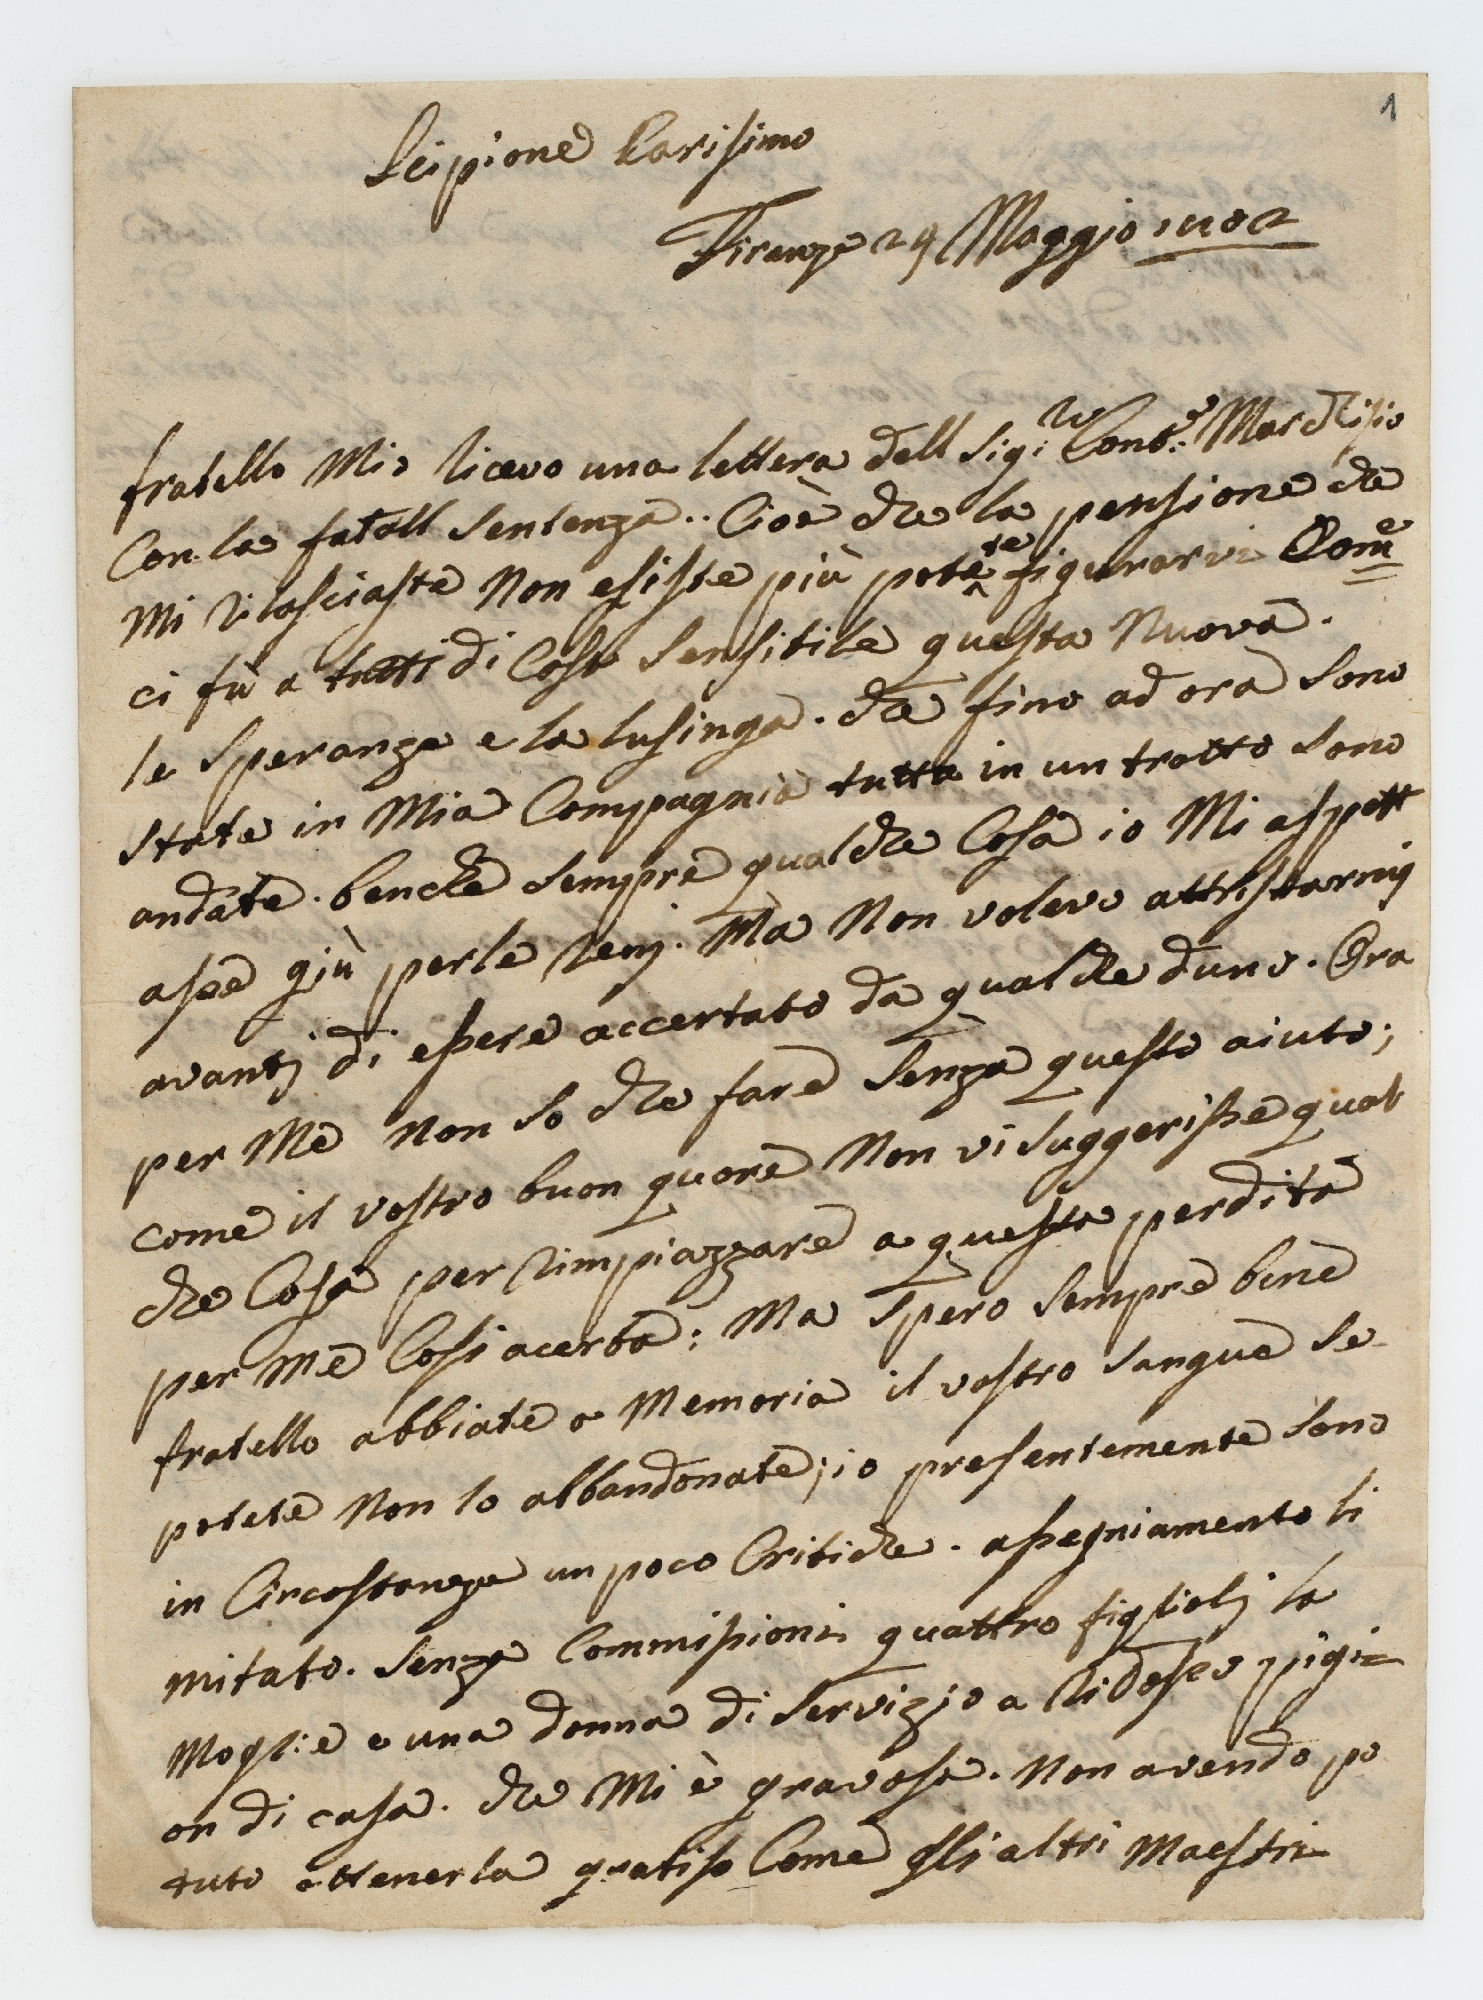 1
Scipione Carisimo
Firenze 29 Maggio 1802
fratello Mio ricevo una lettera dell Sig:re Cont:e Marchisio
Con la fatall Sentenza.. Cioè che la pensione che
Mi rilasciaste Non esiste più potete figurarvi Come
ci fù a tutti di Cosa Sensibile questa Nuova.
le Speranze e la lusinga. che fino ad ora Sono
State in Mia Compagnia tutta in un tratto Sono
andate. benche Sempre qualche Cosa io Mi aspett
asse giù per le renj. Mà Non volevo attristarmj
avantj di essere accertato da qualche duno. Ora
per Me Non So che fare Senza questo aiuto;
come il vostro buon quore Non vi Suggerisse qual
che Cosa per rimpiazzare a questa perdita
per Me Cosi acerba: Ma Spero Sempre bene
fratello abbiate a Memoria il vostro Sangue Se
potete Non lo abbandonate; io presentemente Sono
in Circostanze un poco Critiche. assegniamento li
mitato. Senza Commissioni quattro figliolj la
Moglie e una donna di Servizio a ridosso pigi=
on di casa. che Mi è gravosa. Non avendo po
tuto ottenerla gratiss Come gli altri Maestri